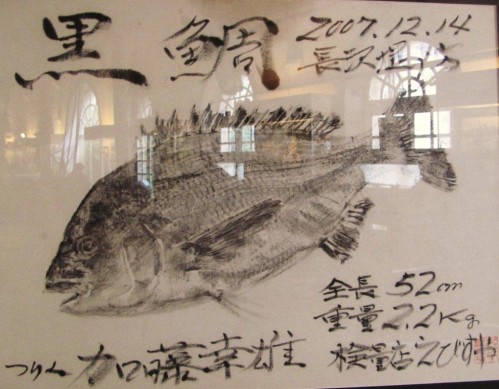 黒鯛
2007.12.14
長沢堤防
全長 52cm
重量 2.2Kg
つり人 加藤幸雄
検量店 えびすや